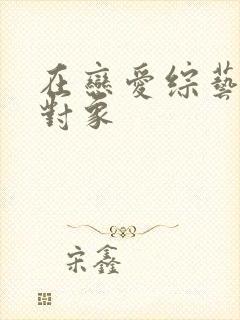 在戀愛綜藝
對象
宋鑫